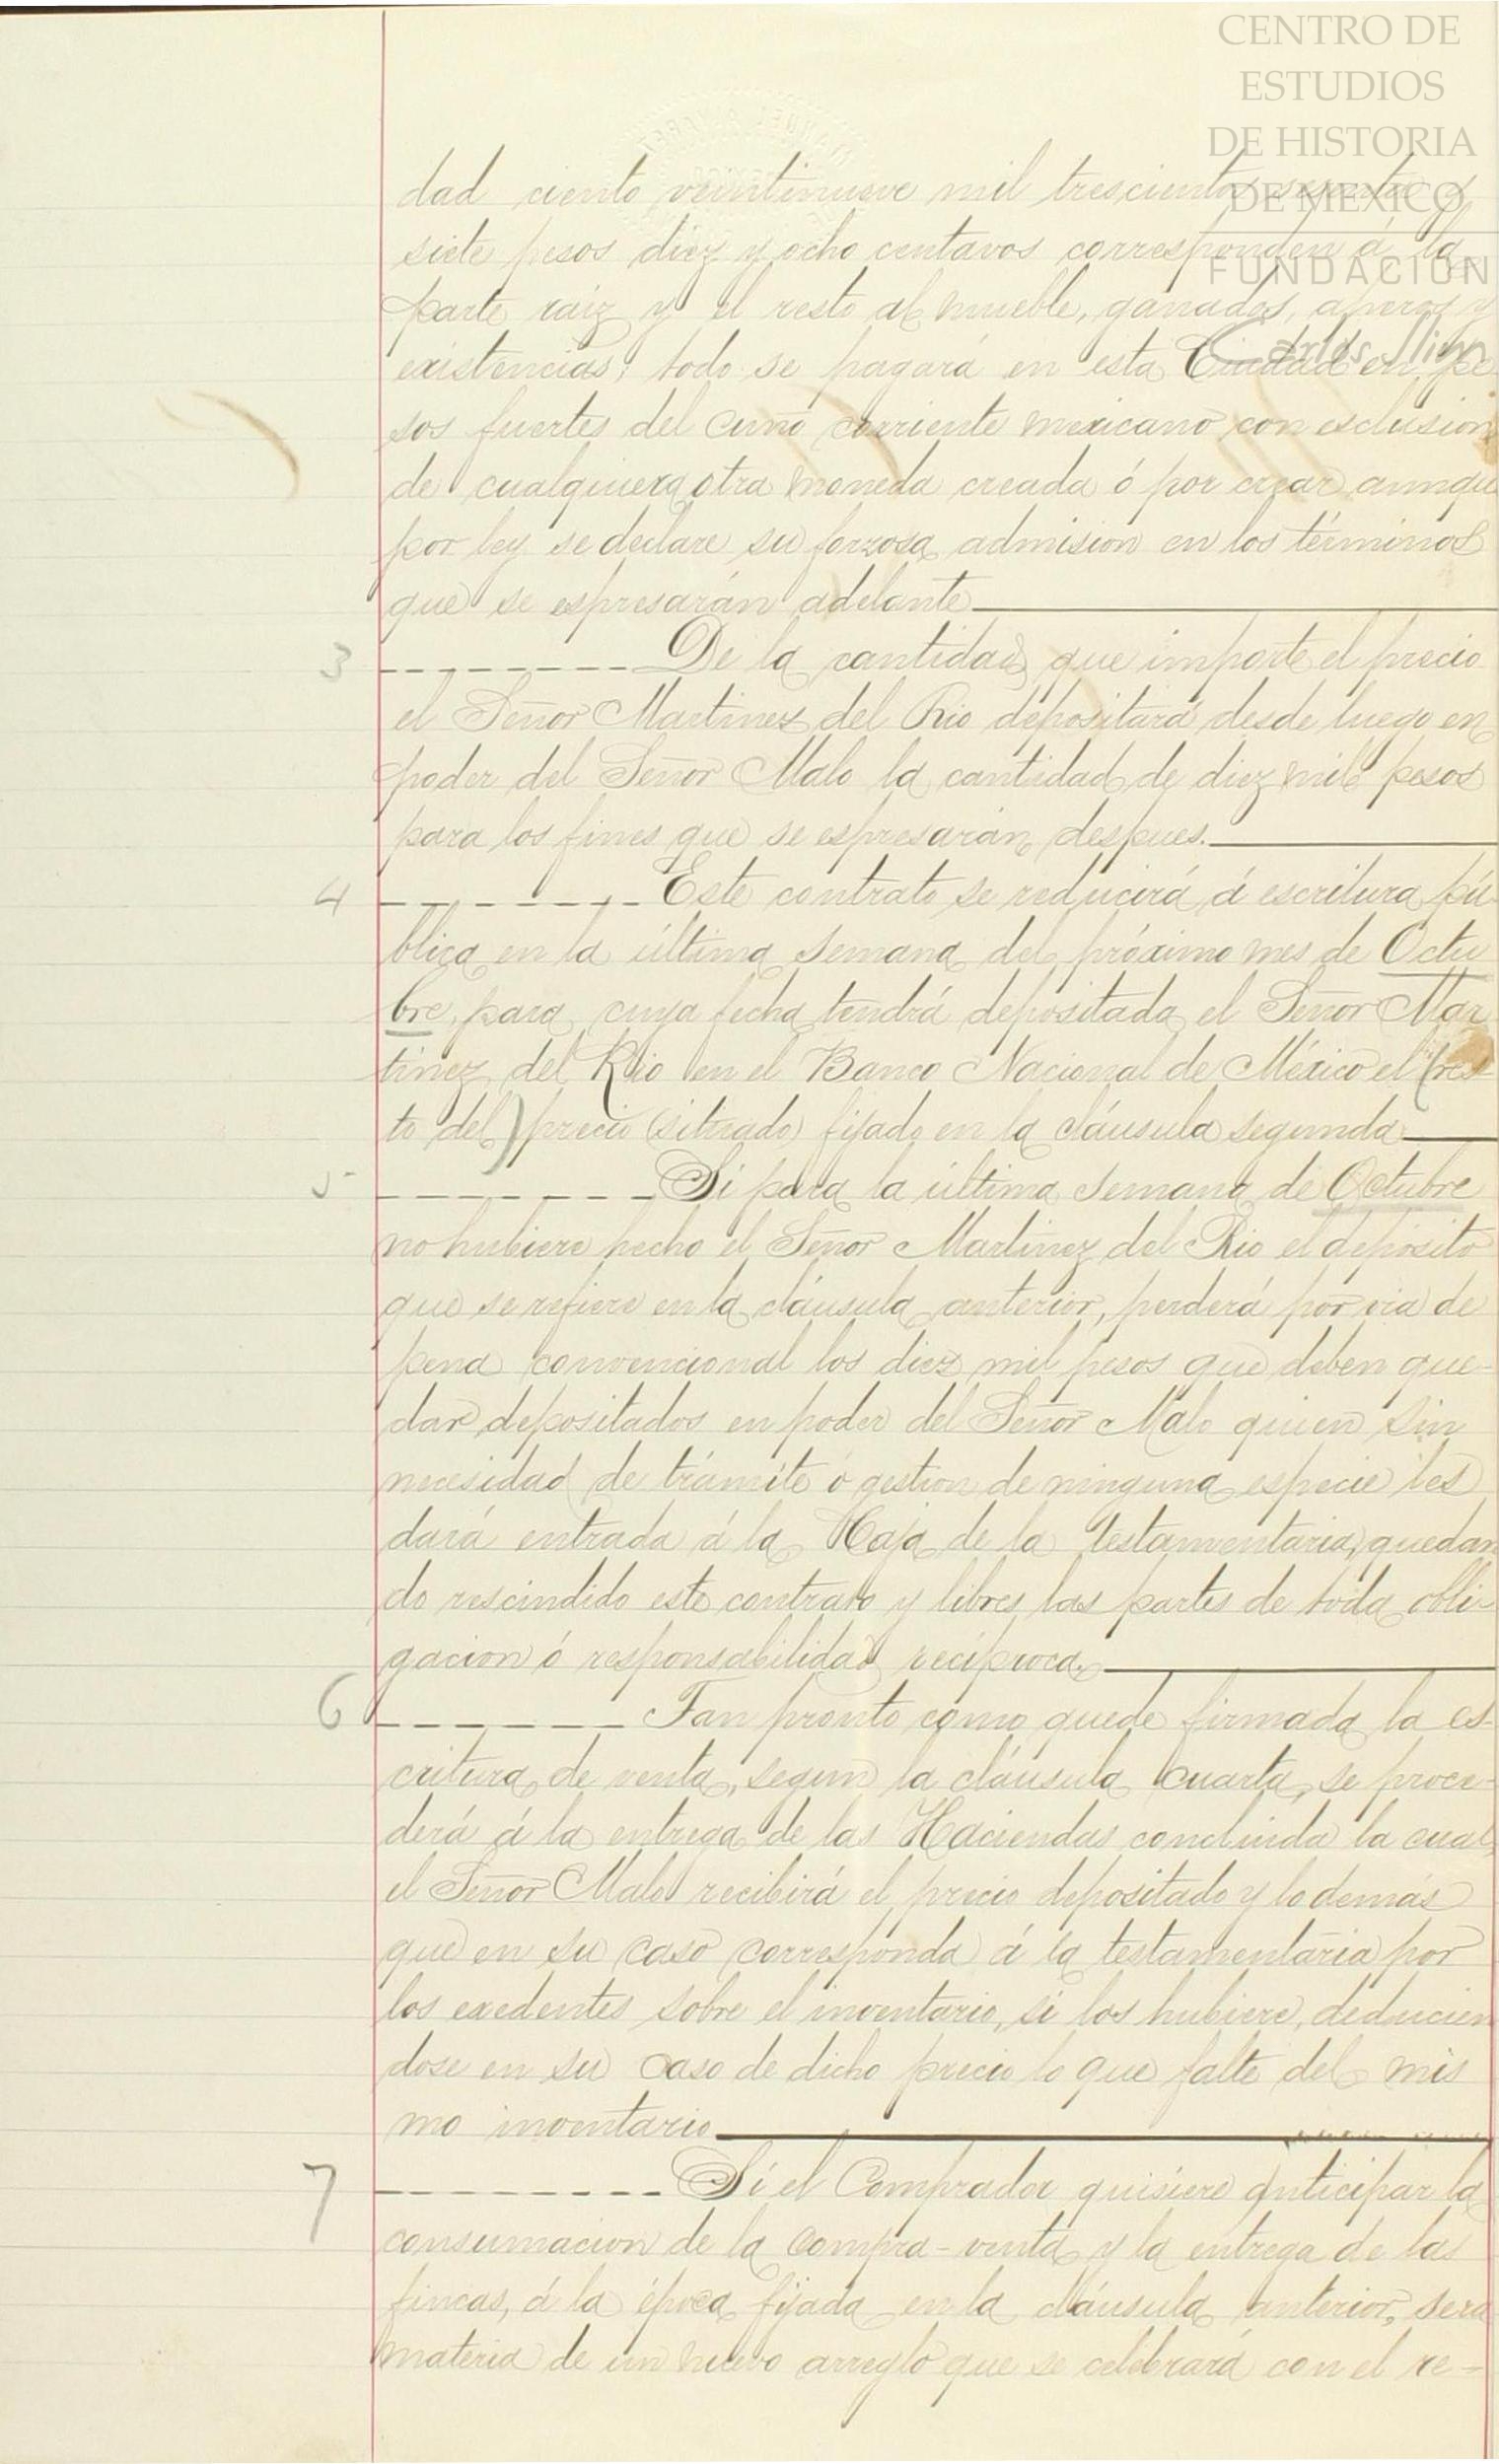 CENTRO DE
ESTUDIOS
DE HISTORIA
DE MÉXICO
FUNDACIÓN
Carlos Slim
dad ciento veintinueve mil trescientos sesenta y
siete pesos diez y ocho centavos corresponden á la
parte raiz y el resto al mueble, ganados, aperos y
existencias; todo se pagará en esta Ciudad en pe
sos fuertes del cuño corriente mexicano con esclusion
de cualquiera otra moneda creada ó por crear aunque
por ley se declare su forzosa admision en los términos
que se espresarán adelante
3 De la cantidad que importe el precio
el Señor Martinez del Rio depositará desde luego en
poder del Señor Malo la cantidad de diez mil pesos
para los fines que se espresarán despues.
4 Este contrato se reducirá á escritura pú
blica en la última semana del próximo mes de Octu
bre, para cuya fecha tendrá depositada el Señor Mar
tinez del Rio en el Banco Nacional de México el (res
to del) precio (situado) fijado en la cláusula segunda
5 Si para la última semana de Octubre
no hubiere hecho el Señor Martinez del Rio el depósito
que se refiere en la cláusula anterior, perderá por via de
pena convencional los diez mil pesos que deben que-
dar depositados en poder del Señor Malo quien sin
necesidad de trámite ó gestion de ninguna especie les
dará entrada á la Caja de la Testamentaria, quedan
do rescindido este contrato y libres las partes de toda obli-
gacion ó responsabilidad reciproca.
6 Tan pronto como quede firmada la es-
critura de venta, segun la cláusula cuarta, se proce-
derá á la entrega de las Haciendas concluida la cual
el Señor Malo recibirá el precio depositado y lo demás
que en su caso corresponda á la testamentaria por
los exedentes sobre el inventario, si los hubiere, deducien
dose en su caso de dicho precio lo que falte del mis
mo inventario
7 Si el Comprador quisiere anticipar la
consumacion de la compra-venta y la entrega de las
fincas, á la época fijada en la cláusula anterior, será
materia de un nuevo arreglo que se celebrará con el re-